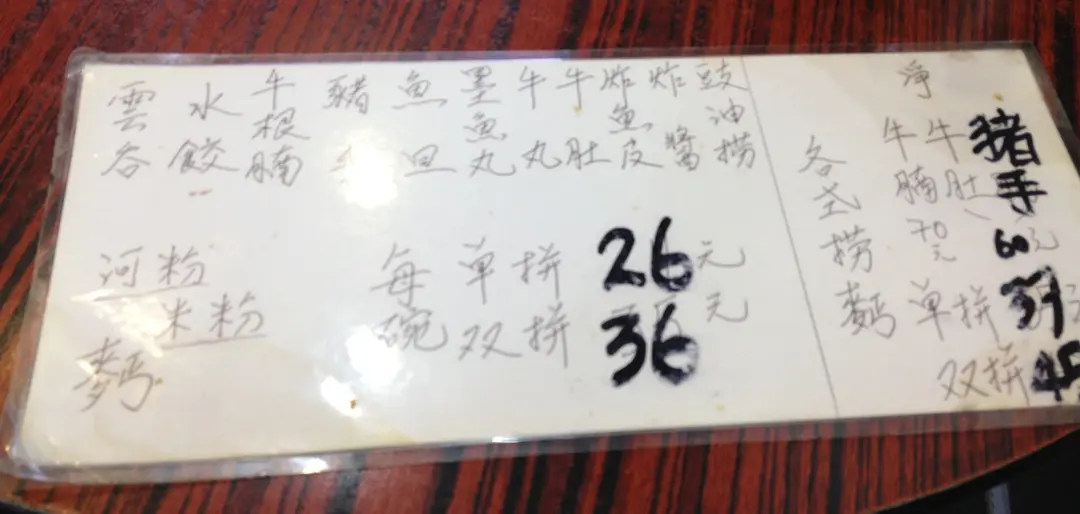 雲谷
水餃
牛根腩
豬
魚旦
墨魚丸
牛丸
牛肚
炸魚皮
炸醬
豉油捞
河粉
米粉
麪
每碗
单拼 26元
双拼 36元
淨
牛腩70元
牛肚、
猪手
60元
各式捞麪
单拼
双拼